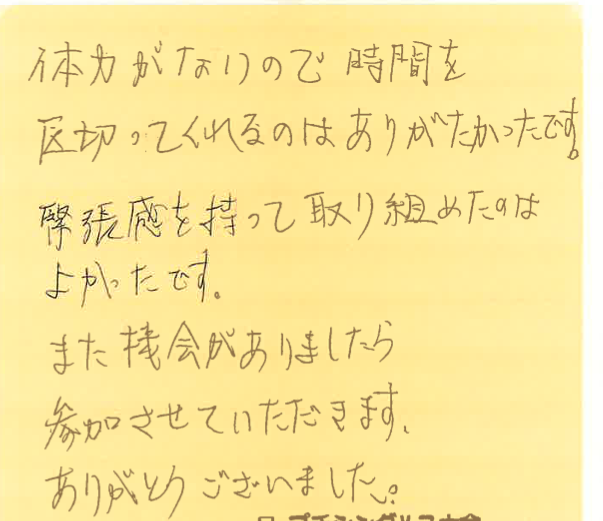 体力がないので 時間を
区切ってくれるのは ありがたかったです。
緊張感を持って取り組めたのは
よかったです。
また機会がありましたら
参加させていただきます。
ありがとうございました。